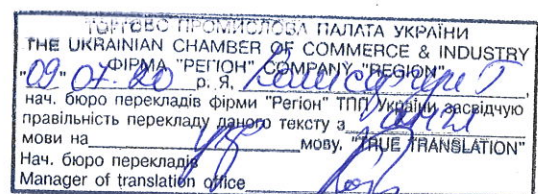 ТОРГОВО ПРОМИСЛОВА ПАЛАТА УКРАЇНИ
THE UKRAINIAN CHAMBER OF COMMERCE & INDUSTRY
ФІРМА "РЕГІОН" COMPANY "REGION"
"09" 07.20 р. Я,
нач. бюро перекладів фірми "Регіон" ТПП України засвідчую
правільність перекладу даного тексту з англ
мови на укр мову. "TRUE TRANSLATION"
Нач. бюро перекладів
Manager of translation office